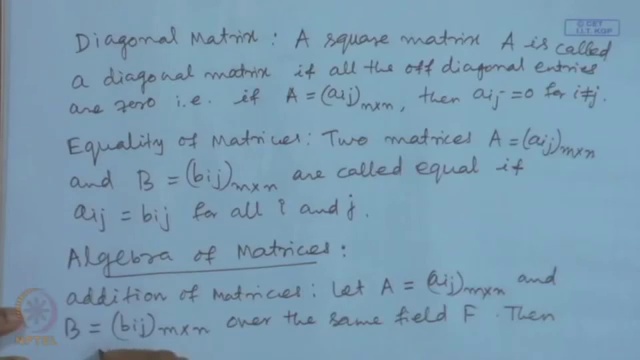 © CET
I.I.T. KGP
Diagonal Matrix : A square matrix A is called
a diagonal matrix if all the off diagonal entries
are zero i.e. if A = (aij)n×n, then aij = 0 for i≠j.
Equality of Matrices: Two matrices A = (aij)m×n
and B = (bij)m×n are called equal if
aij = bij for all i and j.
Algebra of Matrices:
addition of Matrices: Let A = (aij)m×n and
B = (bij)m×n over the same field F. Then
NPTEL